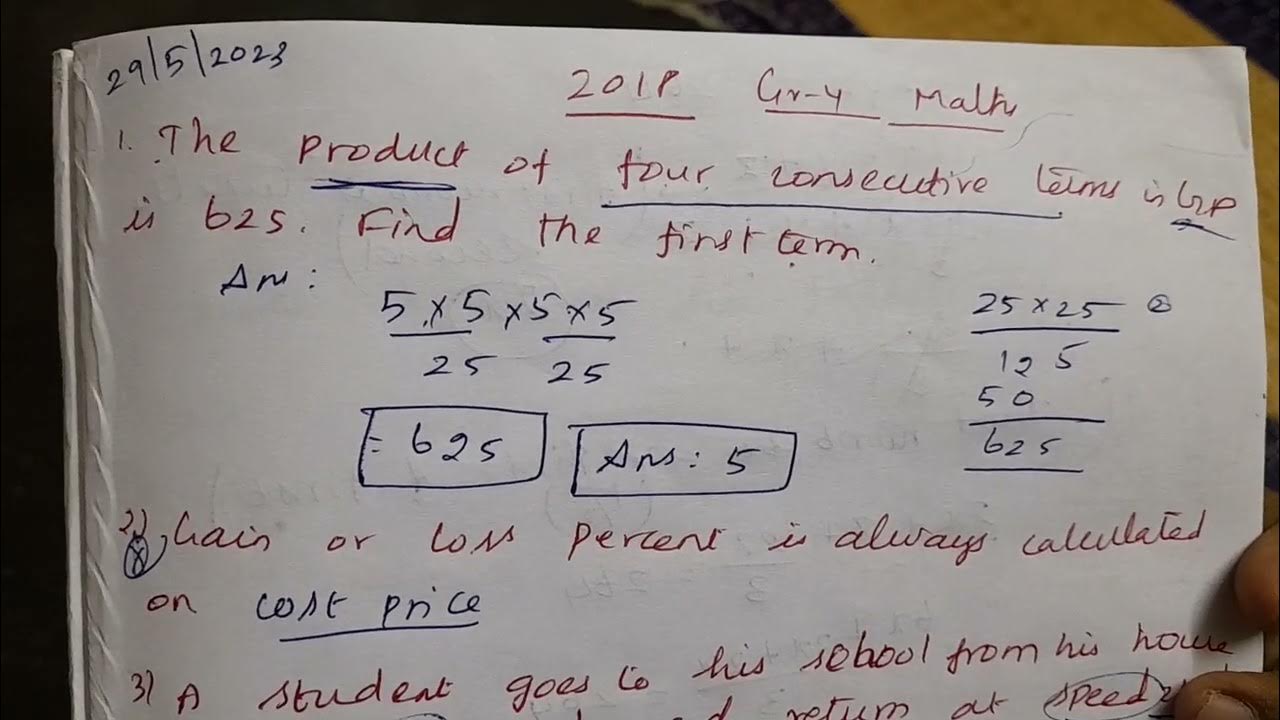 29/5/2023
2018 Gr-4 Maths
1. The product of four consecutive terms in GP
is 625. Find the first term.
Ans:
5 × 5 × 5 × 5
25 25
25 × 25
125
50
625
= 625
Ans: 5
2) Gain or loss percent is always calculated
on cost price
3) A student goes to his school from his house
return at speed